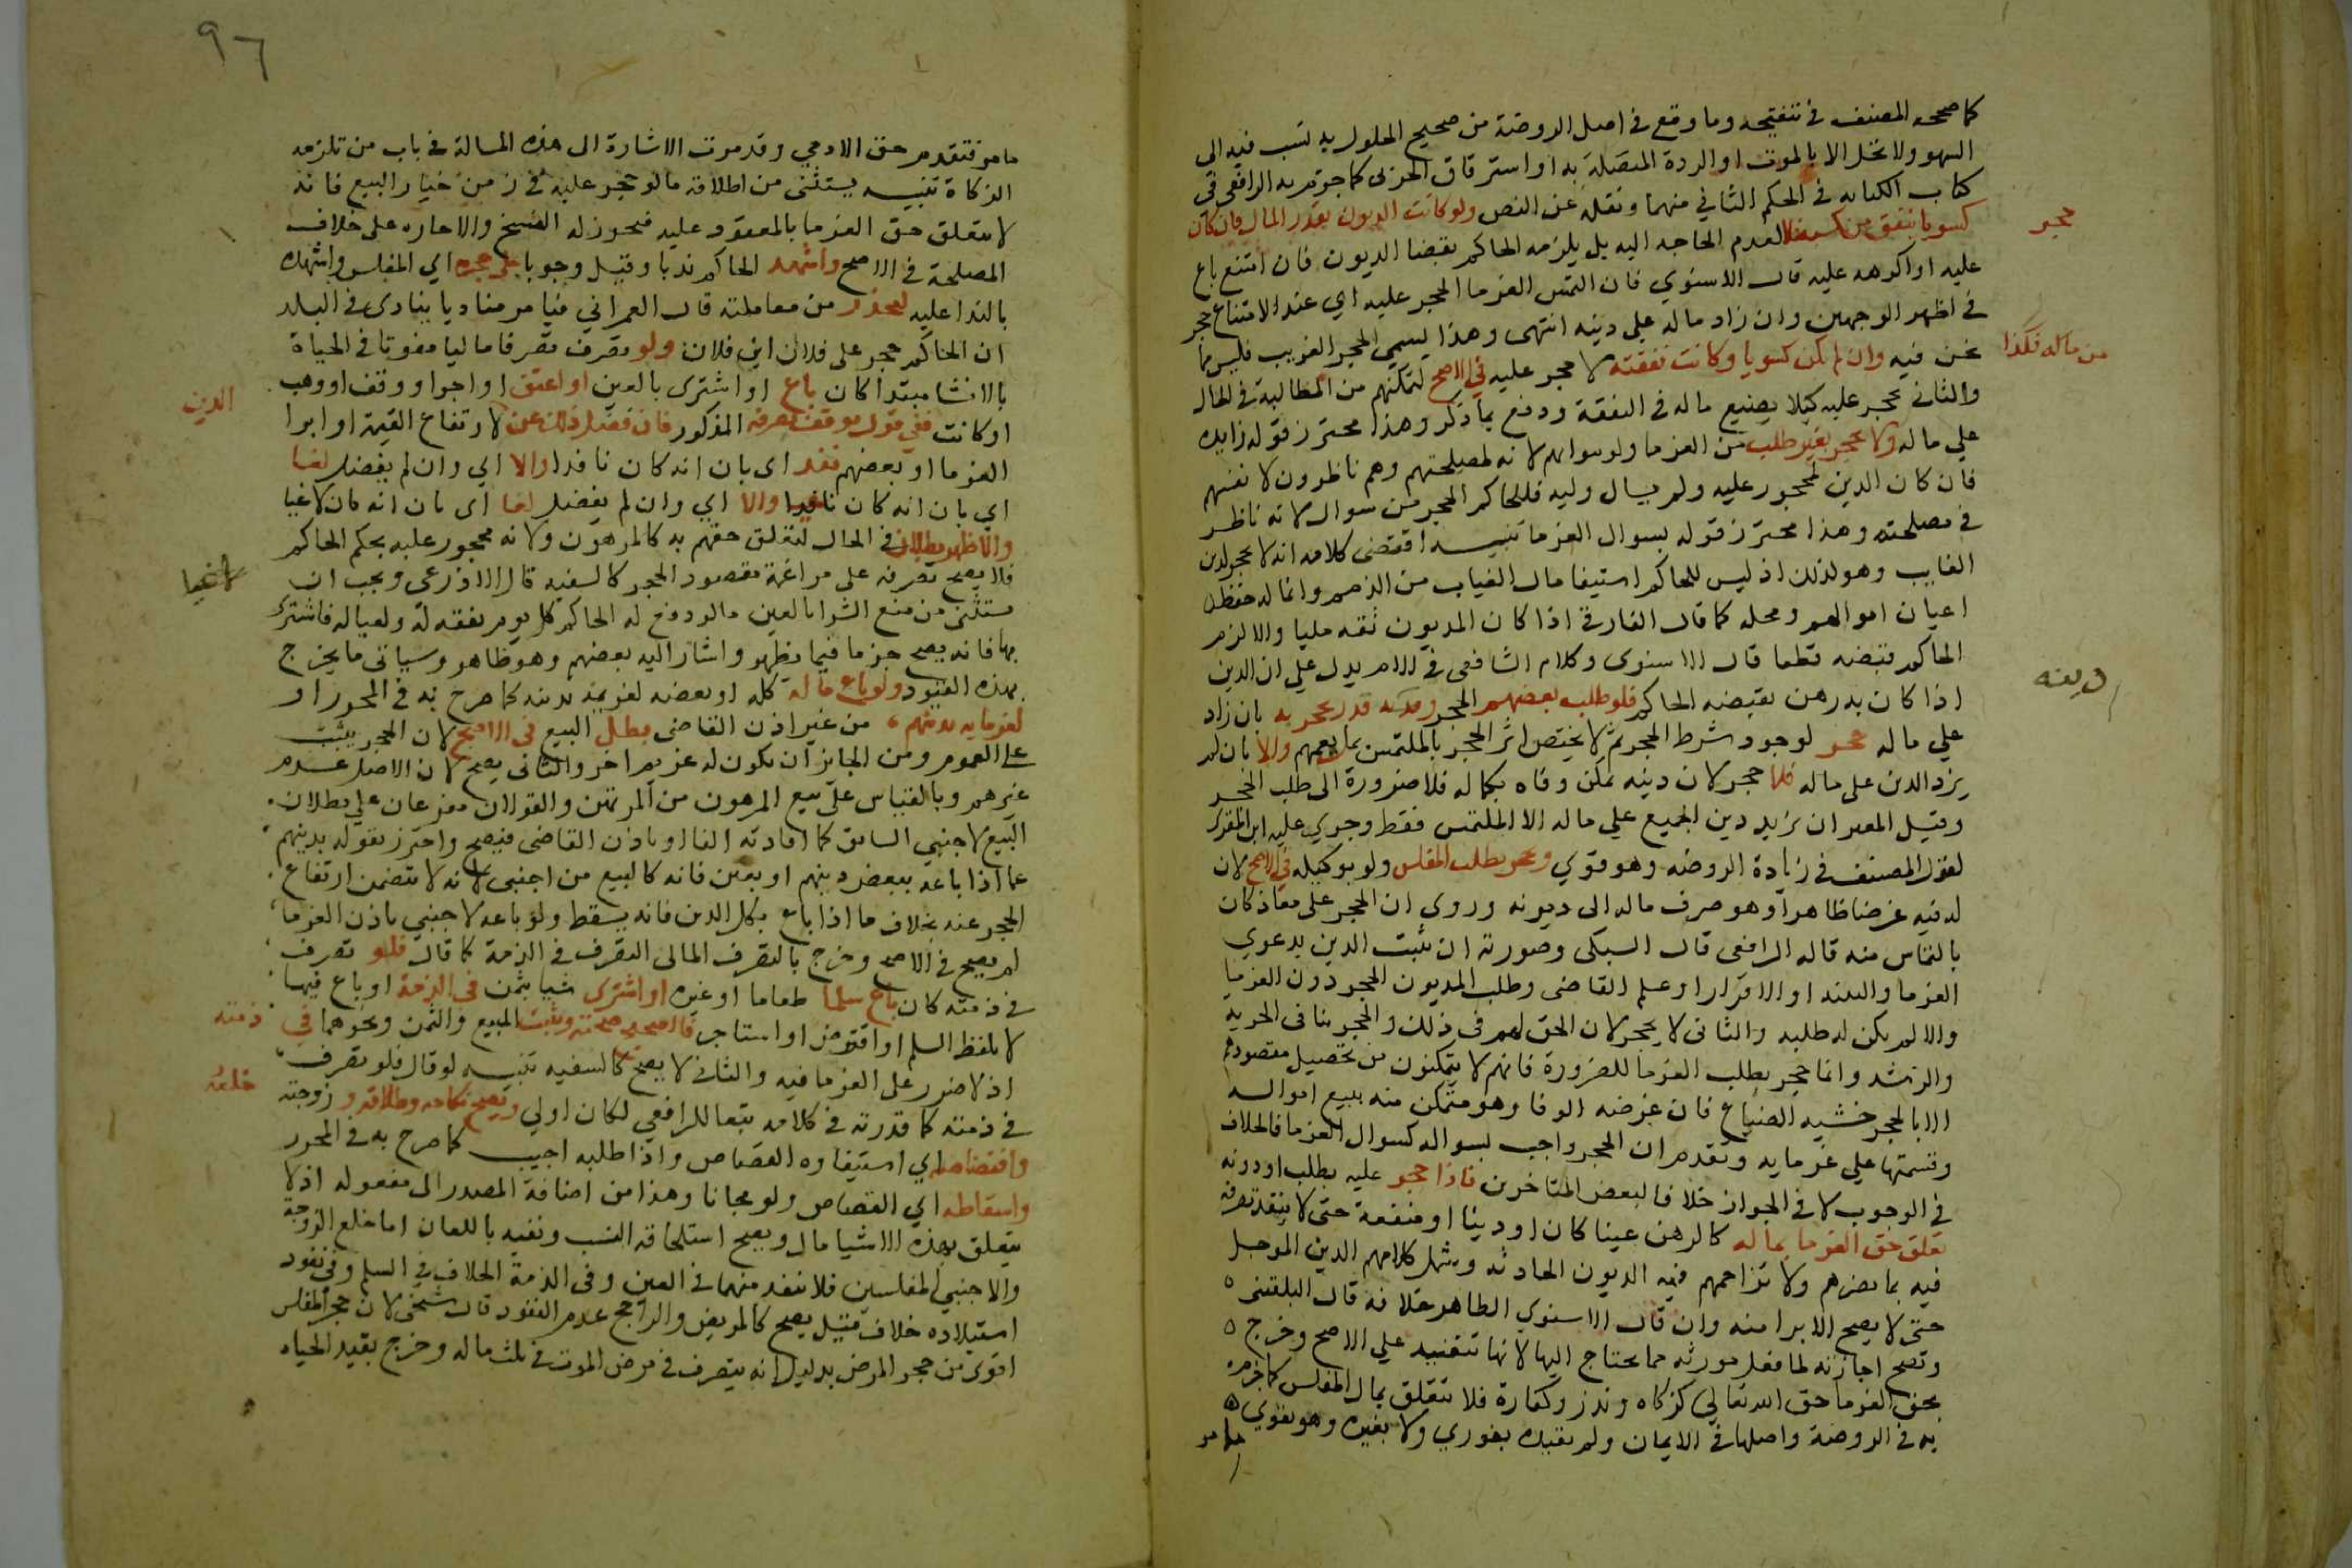 كما صححه المصنف في تنقيحه وما وقع في اصل الروضة من صحيح الحلول به نسب فيه الى
السهو ولا تحل الا بالموت او الردة المتصلة به او استرقاق الحربى كما جزم به الرافعي في
كتاب الكتابه في الحكم الثاني منهما ونقله عن النص ولو كانت الديون بقدر المال فان كان
كسوبا ينفق من كسبه فلا لعدم الحاجه اليه بل يلزمه الحاكم بقضا الديون فان امتنع باع
حجر
عليه او اكرهه عليه قال الاسنوي فان التمس الغرما الحجر عليه اي عند الامتناع حجر
في اظهر الوجهين وان زاد ماله علي دينه انتهى وهذا يسمي الحجر الغريب فليس مما
نحن فيه وان لم يكن كسوبا وكانت نفقته لا حجر عليه في الاصح لتمكنهم من المطالبة في الحال
من ماله فكذا
والثاني يحجر عليه كيلا يضيع ماله في النفقة ودفع بما ذكر وهذا محترز قوله زايده
علي ماله ولا يحجر بغير طلب من الغرما ولو بسوالهم لانه لمصلحتهم وهم ناظرون لانفسهم
فان كان الدين لمحجور عليه ولم يسال وليه فللحاكم الحجر من سوال لانه ناظر
في مصلحته وهذا محترز قوله بسوال الغرما تنبيه اقتضى كلامه انه لا يحجر لدين
الغايب وهو كذلك اذ ليس للحاكم استيفا مال الغياب من الذمم وانما له حفظ
اعيان اموالهم ومحله كما قال الفارقي اذا كان المديون ثقه مليا والا لزم
الحاكم قبضه قطعا قال الاسنوى وكلام الشافعى في الام يدل علي ان الدين
اذا كان به رهن يقبضه الحاكم فلو طلب بعضهم الحجر ودينه قدر يحجر به بان زاد
دينه
علي ماله حجر لوجود شرط الحجر ثم لا يختص اثر الحجر بالملتمس بل يعمهم والا بان لم
يزد الدين على ماله فلا حجر لان دينه يمكن وفاه بكماله فلا ضرورة الى طلب الحجر
وقيل المعتبر ان يزيد دين الجميع علي ماله الا الملتمس فقط وجري عليه ابن المقري
لقول المصنف في زيادة الروضه وهو قوي ويحجر بطلب المفلس ولو بوكيله في الاصح لان
له فيه غرضا ظاهرا وهو صرف ماله الى ديونه وروى ان الحجر على معاذ كان
بالتماس منه قاله الرافعى قال السبكى وصورته ان يثبت الدين بدعوي
الغرما والبينه او الاقرار او علم القاضى وطلب المديون الحجر دون الغرما
والا لم يكن له طلبه والثانى لا يحجر لان الحق لهم في ذلك والحجر ينافى الحريه
والرشد وانما حجر بطلب الغرما للضرورة فانهم لا يتمكنون من تحصيل مقصودهم
الا بالحجر خشيه الضياع فان غرضه الوفا وهو متمكن منه ببيع امواله
وقسمتها علي غرمايه وتقدم ان الحجر واجب بسواله كسوال الغرما فالخلاف
في الوجوب لا في الجواز خلافا لبعض المتاخرين فاذا حجر عليه بطلب او دونه
تعلق حق الغرما بماله كالرهن عينا كان او دينا او منفعة حتى لا ينفذ تصرفه
فيه بما يضرهم ولا تزاحمهم فيه الديون الحادثه ويشمل كلامهم الدين الموجل
حتى لا يصح الابرا منه وان قال الاسنوي الظاهر خلافه قال البلقينى
وتصح اجازته لما فعل مورثه مما يحتاج اليها لانها تنفيذ علي الاصح وخرج
بحق الغرما حق الله تعالى كزكاه ونذر وكفارة فلا تتعلق بمال المفلس كما جزم
به في الروضة واصلها في الايمان ولم يقيده بفوري ولا بغيره وهو يقوي
ما مر
٩٦
ما مر فتقدم حق الادمي وقد مرت الاشارة الى هذه المسالة في باب من تلزمه
الزكاة تنبيه يستثنى من اطلاقه ما لو حجر عليه في زمن خيار البيع فانه
لا يتعلق حق الغرما بالمعقود عليه فيجوز له الفسخ والاجازه على خلاف
المصلحة في الاصح واشهد الحاكم ندبا وقيل وجوبا على حجره اي المفلس واشهده
بالندا عليه ليحذر من معاملته قال العمراني فيامر مناديا ينادى في البلد
ان الحاكم حجر على فلان ابن فلان ولو تصرف تصرفا ماليا مفوتا في الحياة
بالانشا مبتدا كان باع او اشترى بالعين او اعتق او اجر او وقف او وهب
او كانت ففي قول يوقف تصرفه المذكور فان فضل ذلك عن لارتفاع القيمة او ابرا
الدين
الغرما او بعضهم نفذ اى بان انه كان نافدا والا اي وان لم يفضل لغا
اي بان انه كان نافدا والا اي وان لم يفضل لغا اى بان انه كان لاغيا
والاظهر بطلانه في الحال لتعلق حقهم به كالمرهون ولانه محجور عليه بحكم الحاكم
فلا يصح تصرفه على مراغمة مقصود الحجر كالسفيه قال الاذرعى ويجب ان
لاغيا
يستثنى من منع الشرا بالعين ما لو دفع له الحاكم كل يوم نفقه له ولعياله فاشترى
بها فانه يصح جزما فيما يظهر واشار اليه بعضهم وهو ظاهر وسياتى ما يخرج
بهذه القيود ولو باع ماله كله او بعضه لغريمه بدينه كما صرح به في المحرر او
لغرمايه بدينهم من غير اذن القاضى بطل البيع في الاصح لان الحجر يثبت
على العموم ومن الجايز ان يكون له غريم اخر والثانى يصح لان الاصل عدم
غيرهم وبالقياس علي بيع المرهون من المرتهن والقولان مفرعان علي بطلان
البيع لاجنبي السابق كما افادته الفا او باذن القاضى فيصح واحترز بقوله بدينهم
عما اذا باعه ببعض دينهم او بعين فانه كالبيع من اجنبى لانه لا يتضمن ارتفاع
الحجر عنه بخلاف ما اذا باع بكل الدين فانه يسقط ولو باعه لاجنبي باذن الغرما
لم يصح في الاصح وخرج بالتصرف المالى التصرف في الذمة كما قال فلو تصرف
في ذمته كان باع سلما طعاما او غيره او اشترى شيا بثمن في الذمة او باع فيها
لا بلفظ السلم او اقترض او استاجر فالصحيح صحته ويثبت المبيع والثمن ونحوهما في
ذمته
اذ لا ضرر على الغرما فيه والثاني لا يصح كالسفيه تنبيه لو قال فلو تصرف
في ذمته كما قدرته في كلامه تبعا للرافعي لكان اولي ويصح نكاحه وطلاقه و زوجته
خلعه
واقتصاصه اي استيفاوه القصاص واذا طلبه اجيب كما صرح به في المحرر
واسقاطه اي القصاص ولو مجانا وهذا من اضافة المصدر الى مفعوله اذ لا
يتعلق بهذه الاشيا مال ويصح استلحاقه النسب ونفيه باللعان اما خلع الزوجة
والاجنبي المفلسين فلا ينفد منهما في العين وفى الذمة الخلاف في السلم وفى نفود
استيلاده خلاف قيل يصح كالمريض والراجح عدم النفود قال شيخى لان حجر المفلس
اقوى من حجر المرض بدليل انه يتصرف في مرض الموت في ثلث ماله وخرج بقيد الحياه